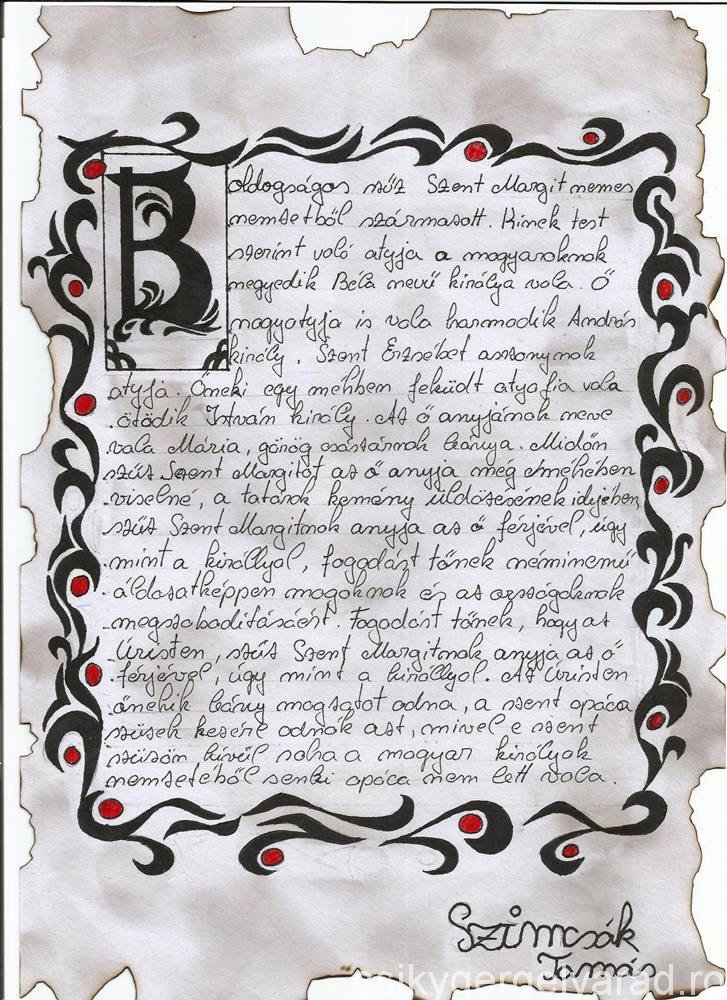 Boldogságos szűz Szent Margit nemes
nemzetből származott. Kinek test
szerint való atyja a magyaroknok
negyedik Béla nevű királya vala. Ő
nagyatyja is vala harmadik András
király. Szent Erzsébet asszonynak
atyja. Őneki egy méhben feküdt atyafia vala
ötödik István király. Az ő anyjának neve
vala Mária, görög császárnak leánya. Midőn
szűz Szent Margitot az ő anyja még ő méhében
viselné, a tatárok kemény üldözésének idejében,
szűz Szent Margitnak anyja az ő férjével, úgy
mint a királlyal, fogadást tőnek néminemű
áldozatképpen magoknak és az országoknak
megszabadításáért. Fogadást tőnek, hogy az
Úristen, szűz Szent Margitnak anyja az ő
férjével, úgy mint a királlyal. Az Úristen
őnekik leány magzatot adna, a szent apáca
szüzek közére adnák azt, mivel e szent
szüzön kívül soha a magyar királyok
nemzetéből senki apáca nem lett vala.
Szimcsák
Tamás
csikygergelyarad.ro